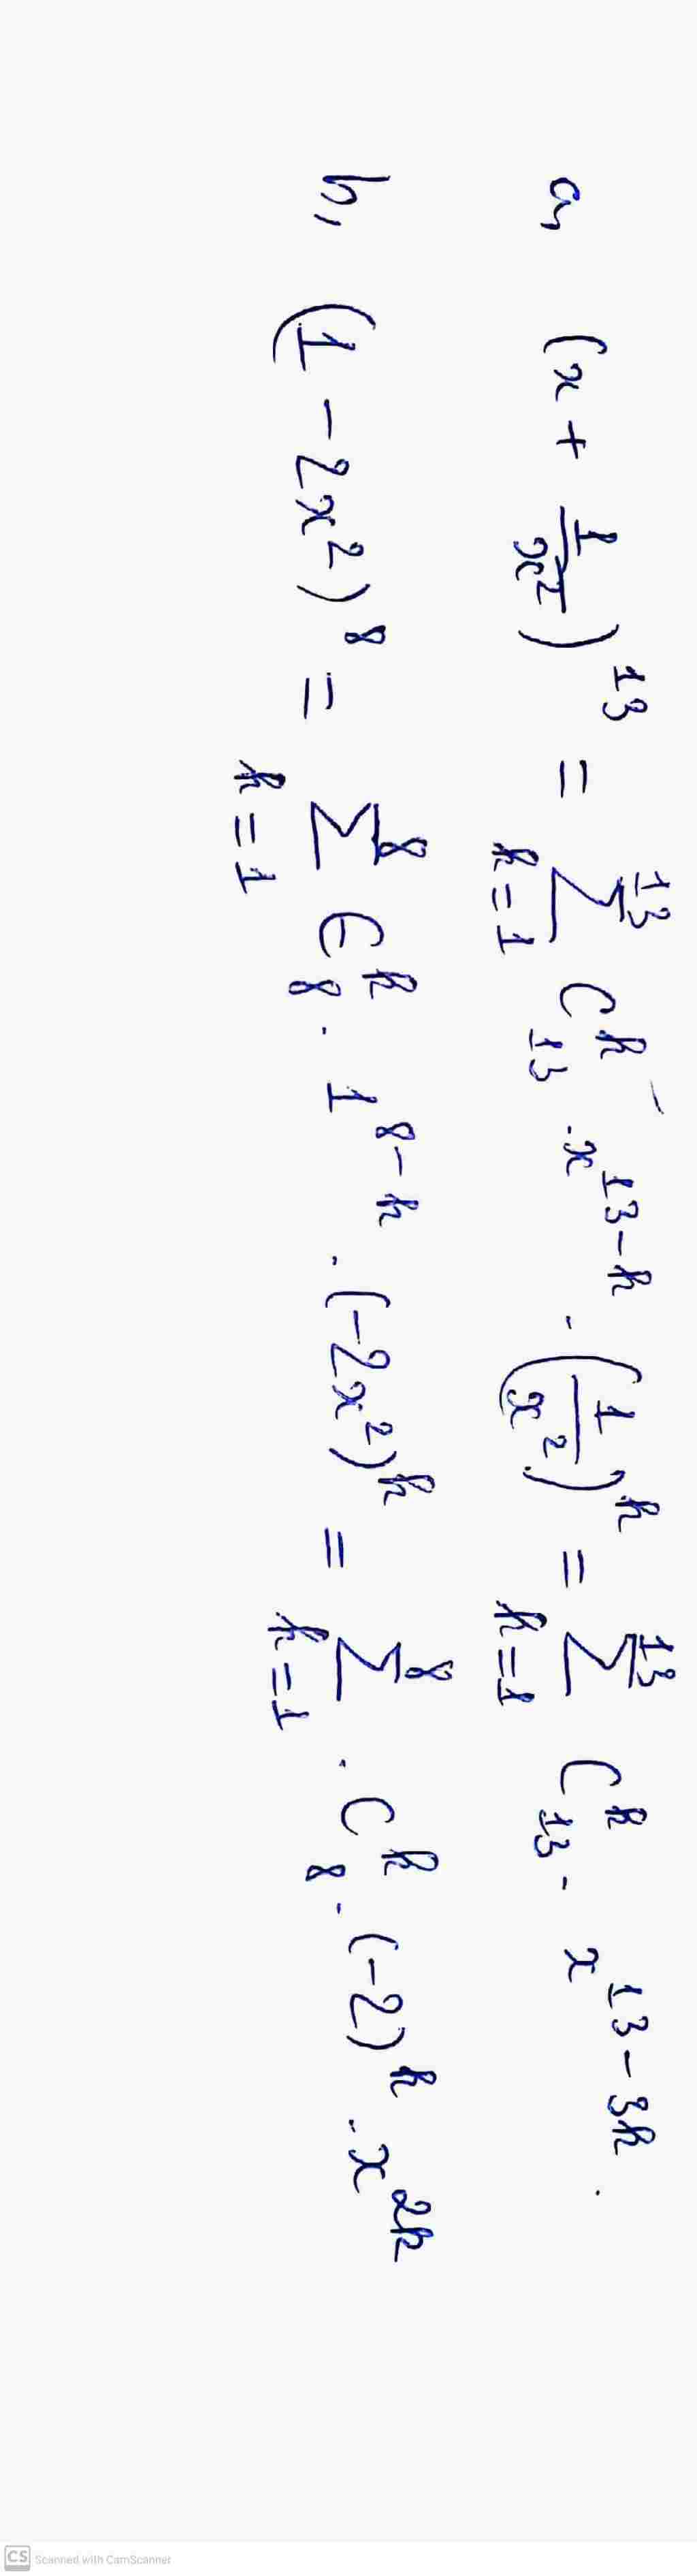 a, (x + 1/x²)¹³ = ∑_{k=1}^{13} C_{13}^{k} . x^{13-k} . (1/x²)^k = ∑_{k=1}^{13} C_{13}^{k} . x^{13-3k} .
b, (1 - 2x²)⁸ = ∑_{k=1}^{8} C_{8}^{k} . 1^{8-k} . (-2x²)^k = ∑_{k=1}^{8} . C_{8}^{k} . (-2)^k . x^{2k}
CS Scanned with CamScanner